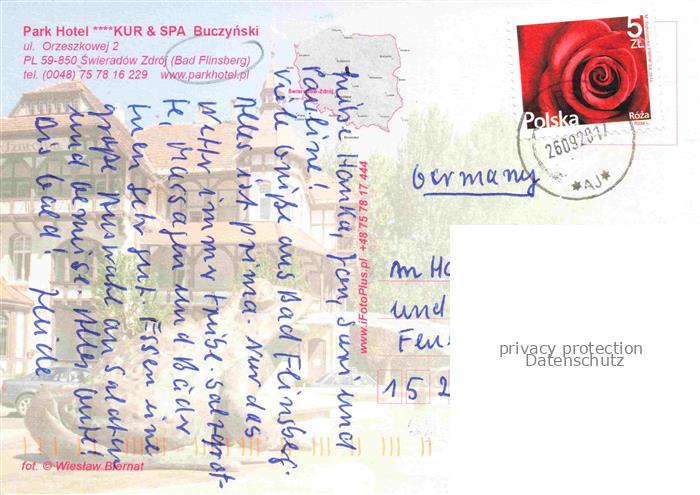 Park Hotel ****KUR & SPA Buczyński
ul. Orzeszkowej 2
PL 59-850 Świeradów Zdrój (Bad Flinsberg)
tel. (0048) 75 78 16 229 www.parkhotel.pl
Świeradów-Zdrój
Hanka, Jens, und
Pauline!
viele Grüße aus Bad Flinsberg.
Alles ist prima. Nur das
Wetter immer trübe. Salzgrot-
te, Massagen und Bäder
tuen sehr gut. Essen eine
große Auswahl an Salaten
und Gemüse. Alles Gute!
Bis bald! Heide
www.iFotoPlus.pl +48 75 78 17 444
fot. © Wiesław Biernat
5
ZŁ
Polska
Róża
26092017
*AJ*
Germany
An Ha
und
Fen
15 2
privacy protection
Datenschutz